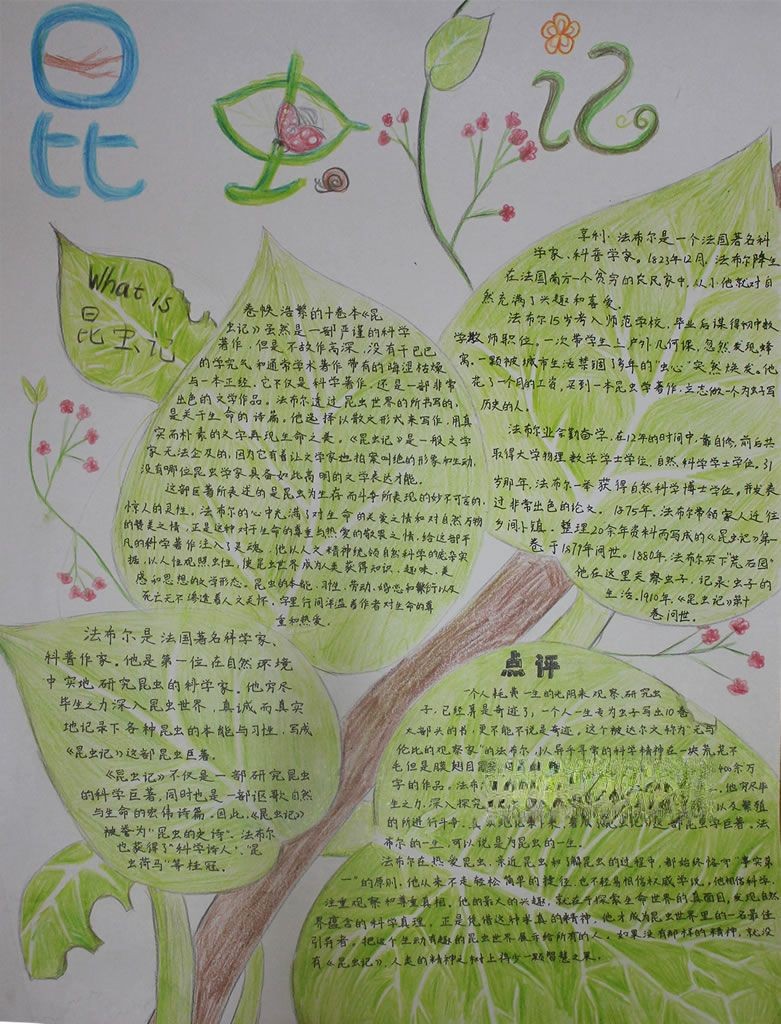 昆虫记
What is
昆虫记
卷帙浩繁的十卷本《昆
虫记》虽然是一部严谨的科学
著作,但是不故作高深,没有干巴巴
的学究气和通常学术著作带有的晦涩枯燥
与一本正经,它不仅是科学著作,还是一部非常
出色的文学作品。法布尔透过昆虫世界的所书写的,
是关于生命的诗篇。他选择以散文形式来写作,用真
实而朴素的文字再现生命之美。《昆虫记》是一般文学
家无法企及的,因为它有着让文学家也拍案叫绝的形象和生动,
没有哪位昆虫学家具备如此高明的文学表达才能。
这部巨著所表述的是昆虫为生存而斗争所表现的妙不可言的,
惊人的灵性。法布尔的心中充满了对生命的关爱之情和对自然万物
的赞美之情,正是这种对于生命的尊重与热爱的敬畏之情,给这部平
凡的科学著作注入了灵魂。他以人文精神统领自然科学的庞杂实
据,以人性观照虫性,使昆虫世界成为人类获得知识、趣味、美
感和思想的文学形态。昆虫的本能、习性、劳动、婚恋和繁衍以及
死亡无不渗透着人文关怀,字里行间洋溢着作者对生命的尊
重和热爱。
亨利·法布尔是一个法国著名科
学家、科普学家。1823年12月,法布尔降生
在法国南方一个贫穷的农民家中,从小他就对自
然充满了兴趣和喜爱。
法布尔15岁考入师范学校,毕业后谋得初中数
学教师职位。一次带学生上户外几何课,忽然发现蜂
窝。一颗被城市生活禁锢了多年的“虫心”突然焕发。他
花了一个月的工资,买到一本昆虫学著作,立志做一个为虫子写
历史的人。
法布尔业余勤奋学,在12年的时间中,靠自修,前后共
取得大学物理数学学士学位、自然科学学士学位。31
岁那年,法布尔一举获得自然科学博士学位。并发表
过非常出色的论文。1875年,法布尔带领家人迁往
乡间小镇。整理20余年资料而写成的《昆虫记》第一
卷于1877年问世。1880年,法布尔买下“荒石园”
他在这里观察虫子,记录虫子的
生活。1910年,《昆虫记》第十
卷问世。
法布尔是法国著名科学家、
科普作家。他是第一位在自然环境
中实地研究昆虫的科学家。他穷尽
毕生之力深入昆虫世界,真诚而真实
地记录下各种昆虫的本能与习性,写成
《昆虫记》这部昆虫巨著。
《昆虫记》不仅是一部研究昆虫
的科学巨著,同时也是一部讴歌自然
与生命的宏伟诗篇。因此,《昆虫记》
被誉为“昆虫的史诗”。法布尔
也获得了“科学诗人”、“昆
虫荷马”等桂冠。
点评
一个人耗费一生的光阴来观察、研究虫
子,已经算是奇迹了,一个人一生专为虫子写出10卷
大部头的书,更不能不说是奇迹。这个被达尔文称为“无与
伦比的观察家”的法布尔,以异乎寻常的科学精神在一块荒芜不
毛但是膜翅目 400余万
字的作品。法布 他穷尽毕
生之力,深入探究 以及繁殖
的所进行斗争。真 昆虫学巨著。法
布尔的一生,可以说是为昆虫的一生。
法布尔在热爱昆虫、亲近昆虫和了解昆虫的过程中,都始终恪守“事实第
一”的原则,他从来不走轻松简单的捷径,也不轻易相信权威学说。他相信科学,
注重观察和尊重真相,他的最大的兴趣,就在于探索生命世界的真面目,发现自然
界蕴含的科学真理。正是凭借这种求真的精神,他才成为昆虫世界里的一名最佳
引荐者。把这个生动有趣的昆虫世界展示给所有的人。如果没有那样的精神,就没
有《昆虫记》,人类的精神之树上得少一颗智慧之果。